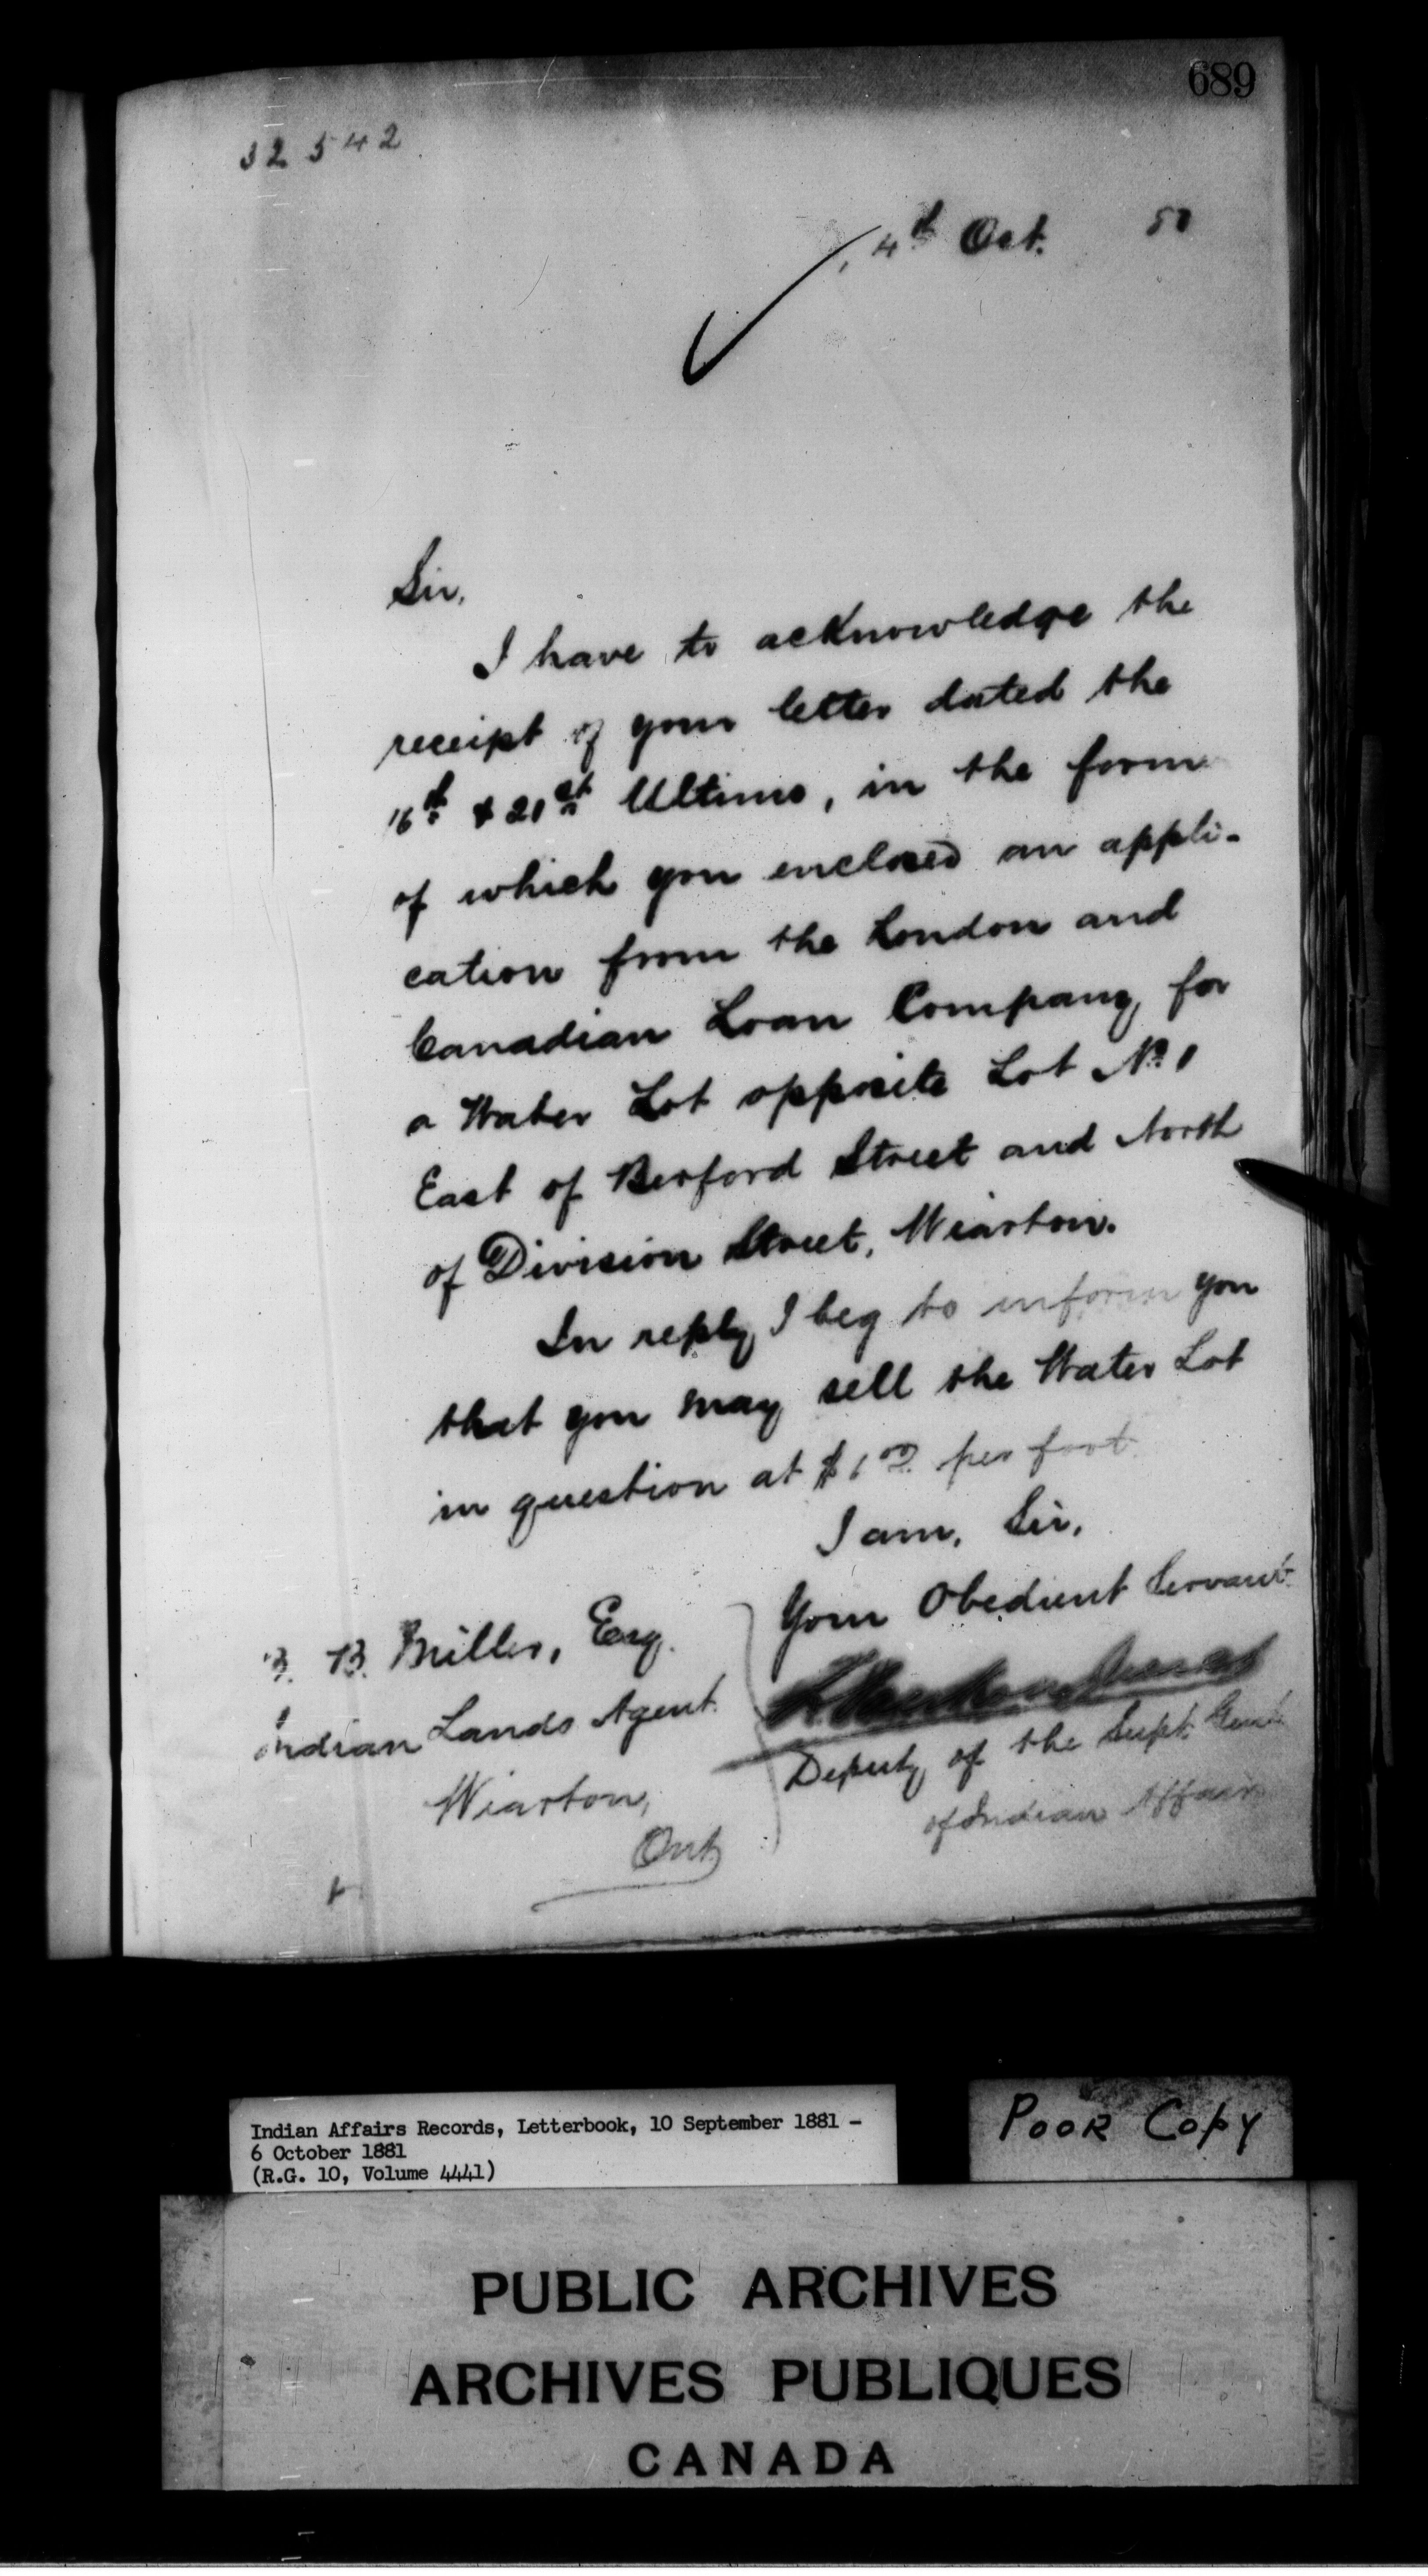 689
32542
4th Oct. 81
Sir,
I have to acknowledge the
receipt of your letter dated the
16th & 21st Ultimo, in the form
of which you enclosed an appli-
cation from the London and
Canadian Loan Company for
a Water Lot opposite Lot No. 1
East of Berford Street and North
of Division Street, Wiarton.
In reply I beg to inform you
that you may sell the Water Lot
in question at $1.00 per foot.
I am, Sir,
Your Obedient Servant
B. Miller, Esq.
Indian Lands Agent.
Wiarton,
Ont
Deputy of the Supt. Genl.
of Indian Affairs
Indian Affairs Records, Letterbook, 10 September 1881 -
6 October 1881
(R.G. 10, Volume 4441)
POOR COPY
PUBLIC ARCHIVES
ARCHIVES PUBLIQUES
CANADA